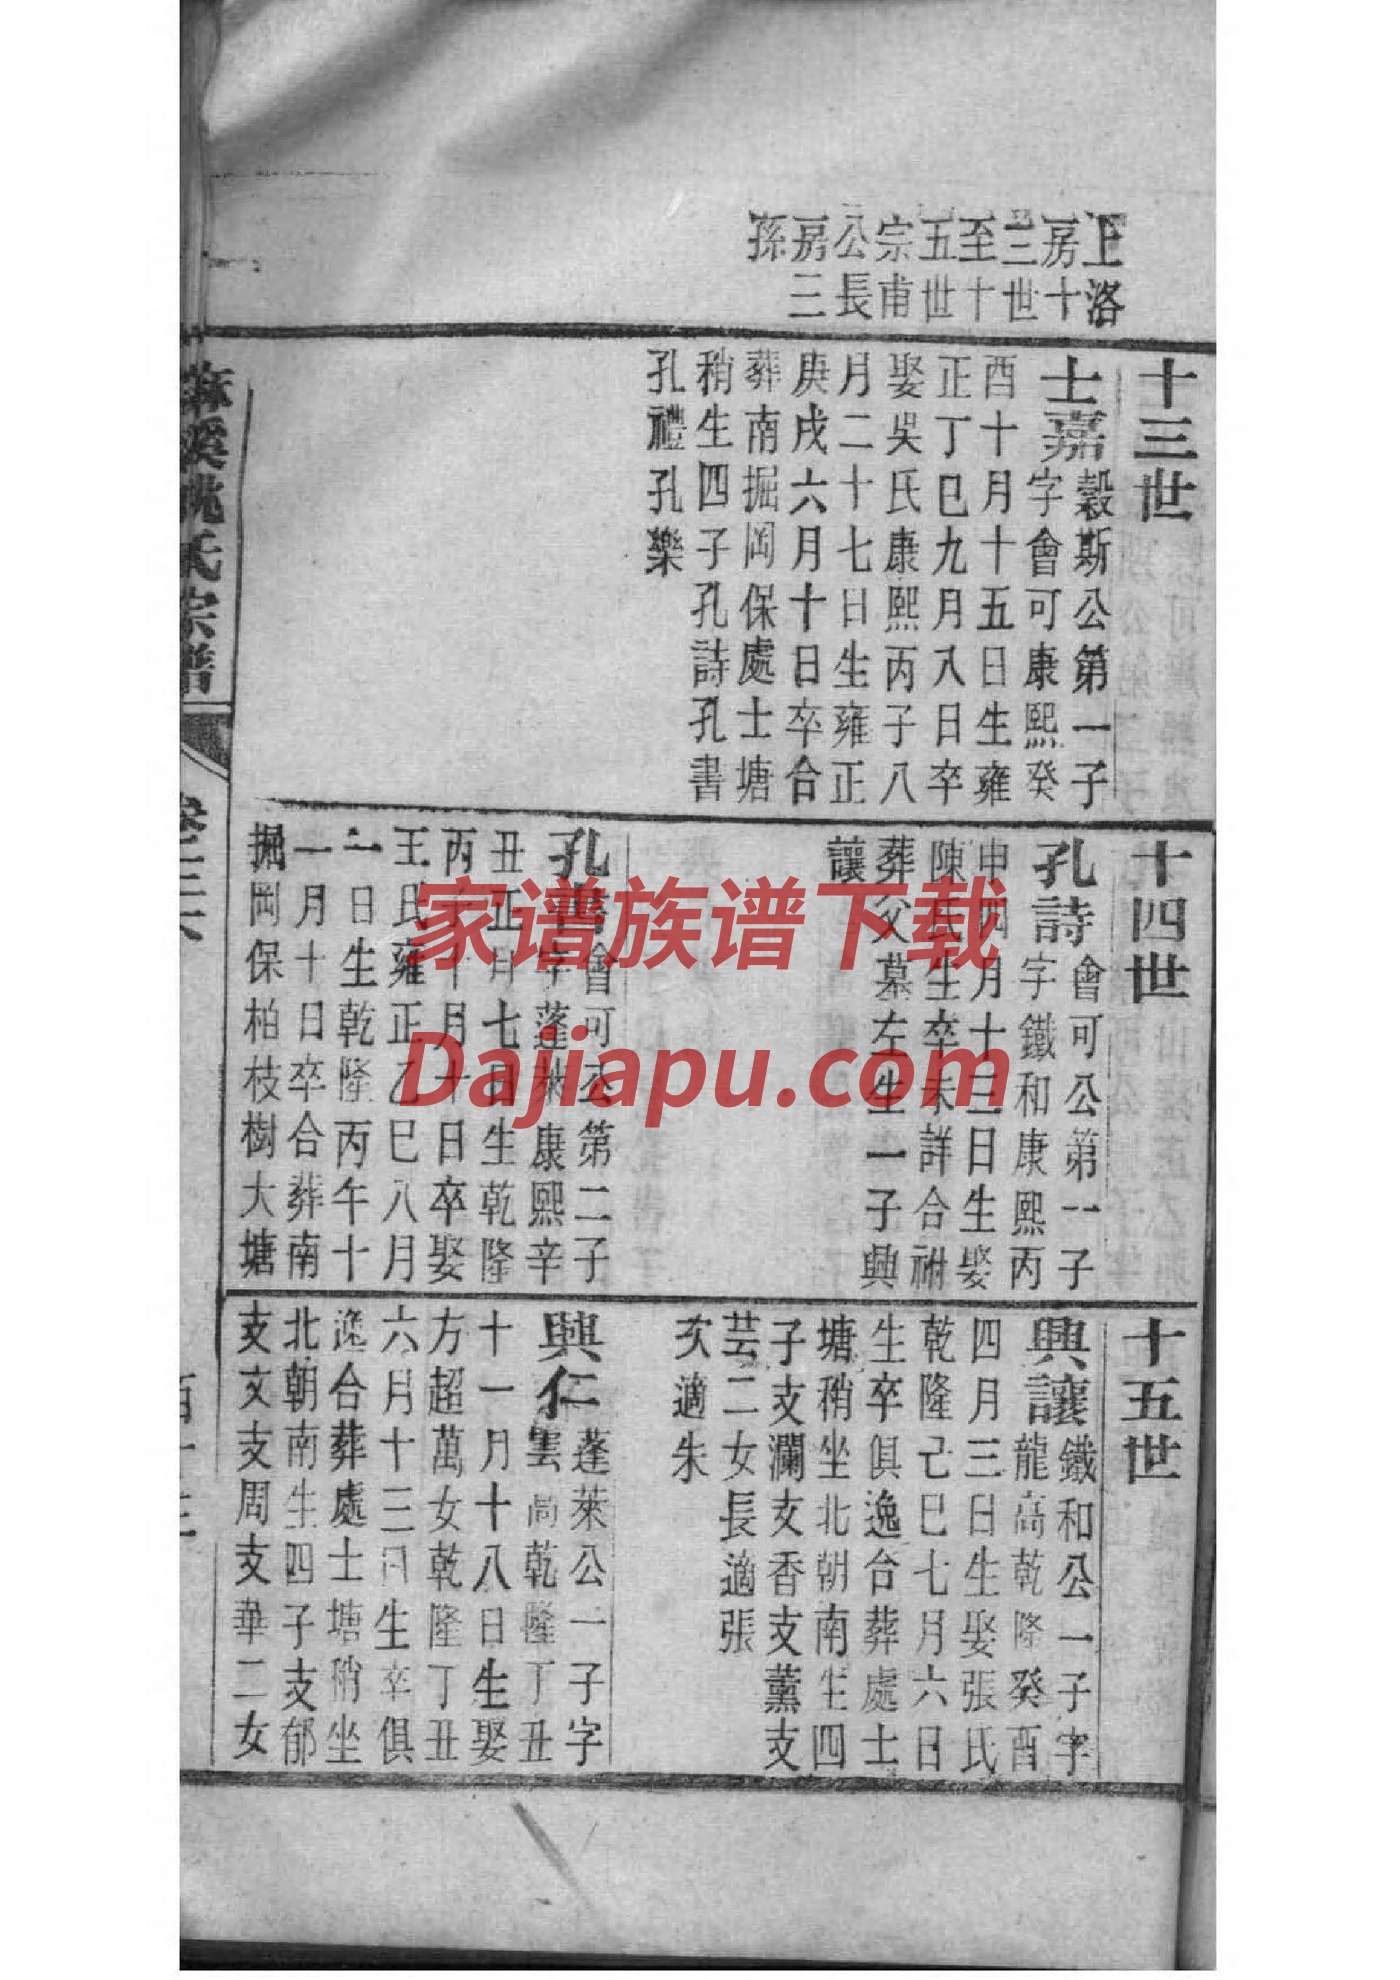 上洛
房十
三世
至十
五世
宗甫
公長
房三
孫
十三世
士嘉
穀斯公第一子
字會可康熙癸
酉十月十五日生雍
正丁巳九月八日卒
娶吳氏康熙丙子八
月二十七日生雍正
庚戌六月十日卒合
葬南掘岡保處士塘
稍生四子孔詩孔書
孔禮孔樂
十四世
孔詩
會可公第一子
字鐵和康熙丙
申四月十三日生娶
陳氏生卒未詳合祔
葬父墓左生一子興
讓
孔書
會可公第二子
字蓬萊康熙辛
丑正月七日生乾隆
丙十月十日卒娶
王氏雍正乙巳八月
一日生乾隆丙午十
一月十日卒合葬南
掘岡保柏枝樹大塘
十五世
興讓
鐵和公一子字
龍高乾隆癸酉
四月三日生娶張氏
乾隆己巳七月六日
生卒俱逸合葬處士
塘稍坐北朝南生四
子支瀾支香支薰支
芸二女長適張
次適朱
興仁
蓬萊公一子字
雲高乾隆丁丑
十一月十八日生娶
方超萬女乾隆丁丑
六月十三日生卒俱
逸合葬處士塘稍坐
北朝南生四子支郁
支文支周支華二女
溪姚氏宗譜
家谱族谱下载
Dajiapu.com